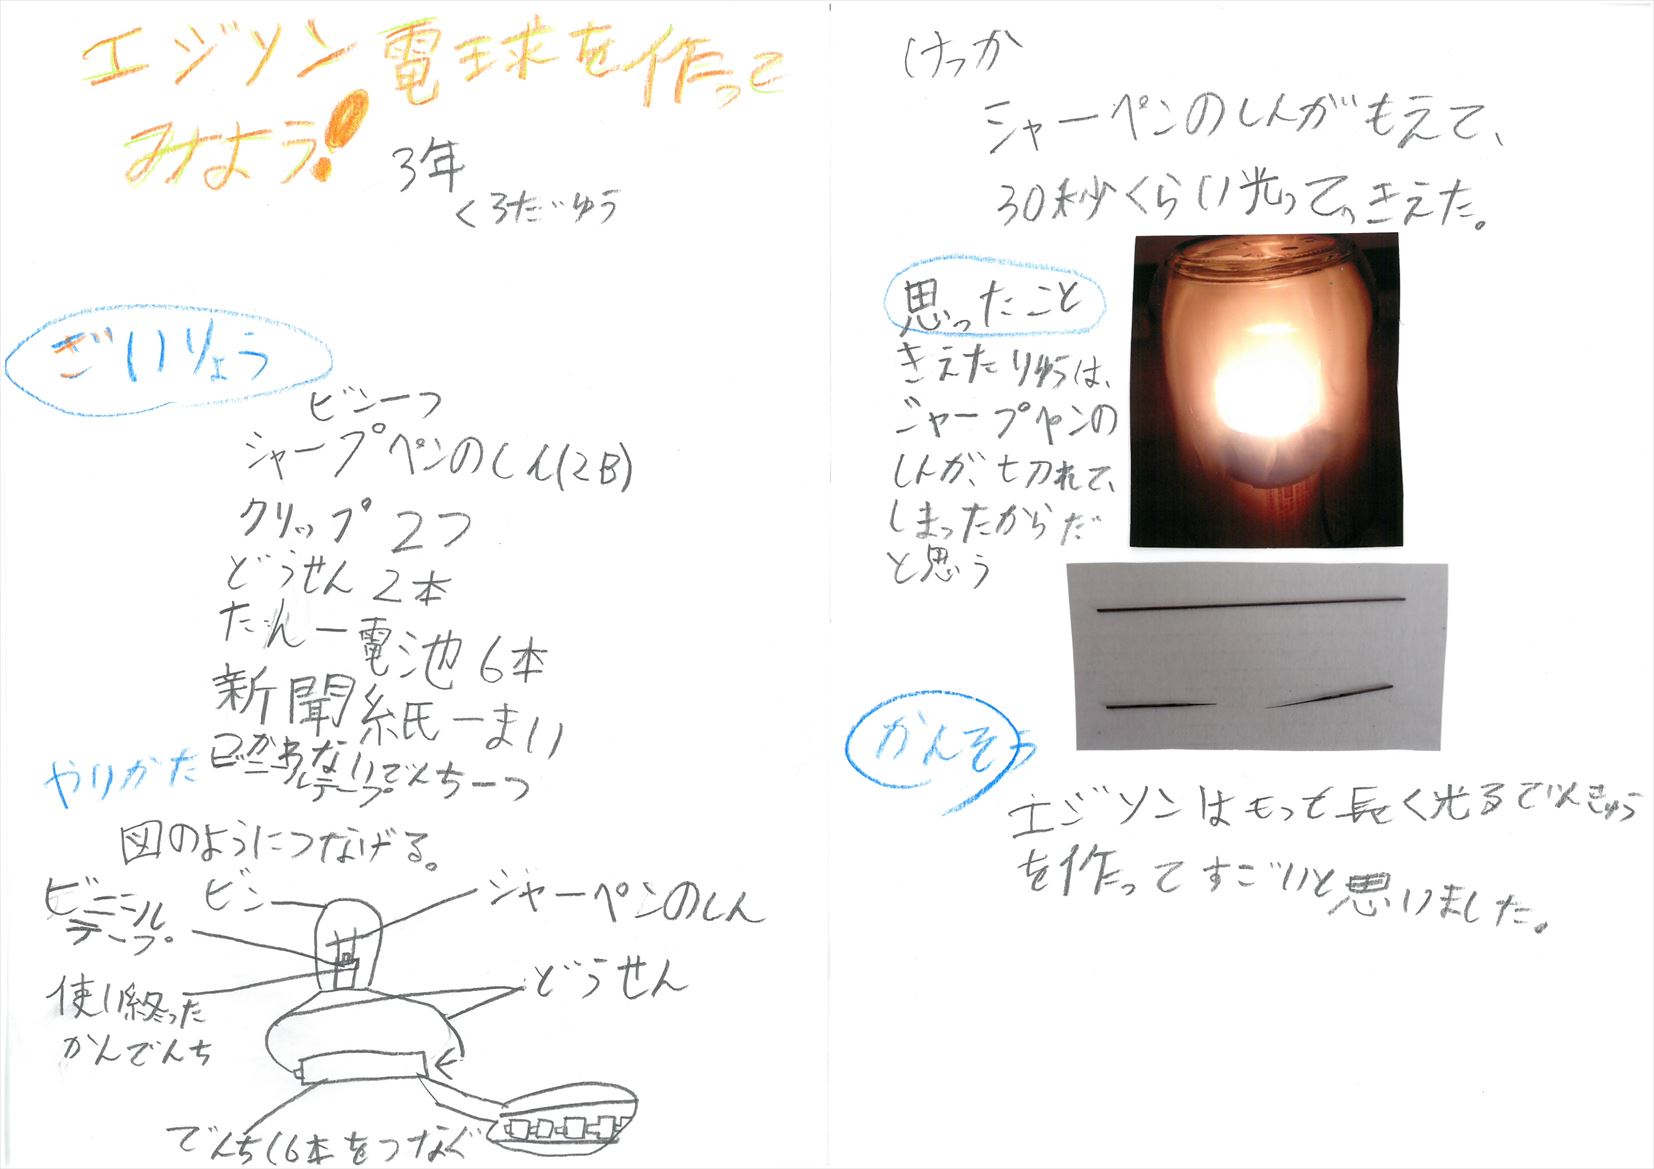 エジソン電球を作って
みよう!
3年
くろだゆう
ざいりょう
ビン一つ
シャープペンのしん(2B)
クリップ2つ
どうせん2本
たん一電池6本
新聞紙一まい
つかわないでんち一つ
ビニールテープ
やりかた
図のようにつなげる。
ビニール
テープ
ビン
シャーペンのしん
使い終った
かんでんち
どうせん
でんち6本をつなぐ
けっか
シャーペンのしんがもえて、
30秒くらい光って、きえた。
思ったこと
きえたりゆうは、
シャープペンの
しんが、切れて、
しまったからだ
と思う
かんそう
エジソンはもっと長く光るでんきゅう
を作ってすごいと思いました。